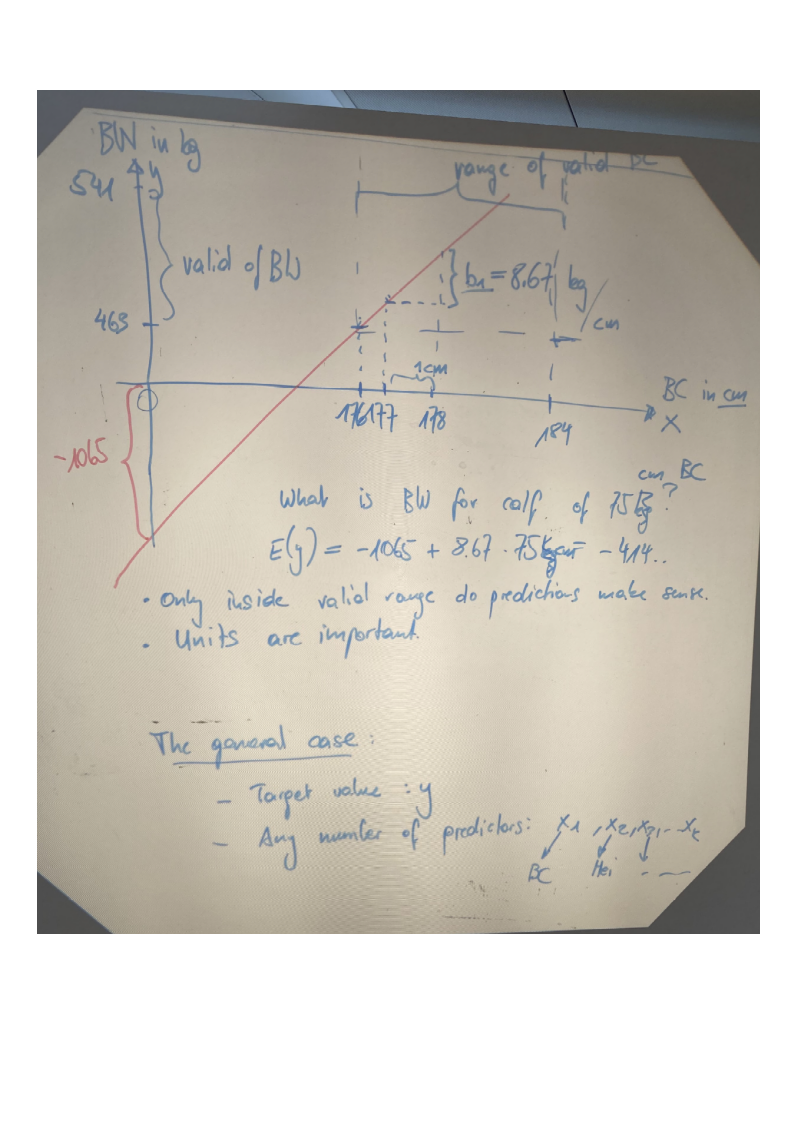 BW in kg
y
range of valid BC
541
valid of BW
b₁ = 8.67 kg/cm
463
1cm
176 177 178 184
BC in cm
x
-1065
cm BC
What is BW for calf of 75 kg ?
E(y) = -1065 + 8.67 · 75 = -414..
• Only inside valid range do predictions make sense.
• Units are important.
The general case:
- Target value : y
- Any number of predictors: x₁, x₂, x₃, .. xₖ
BC Hei - —